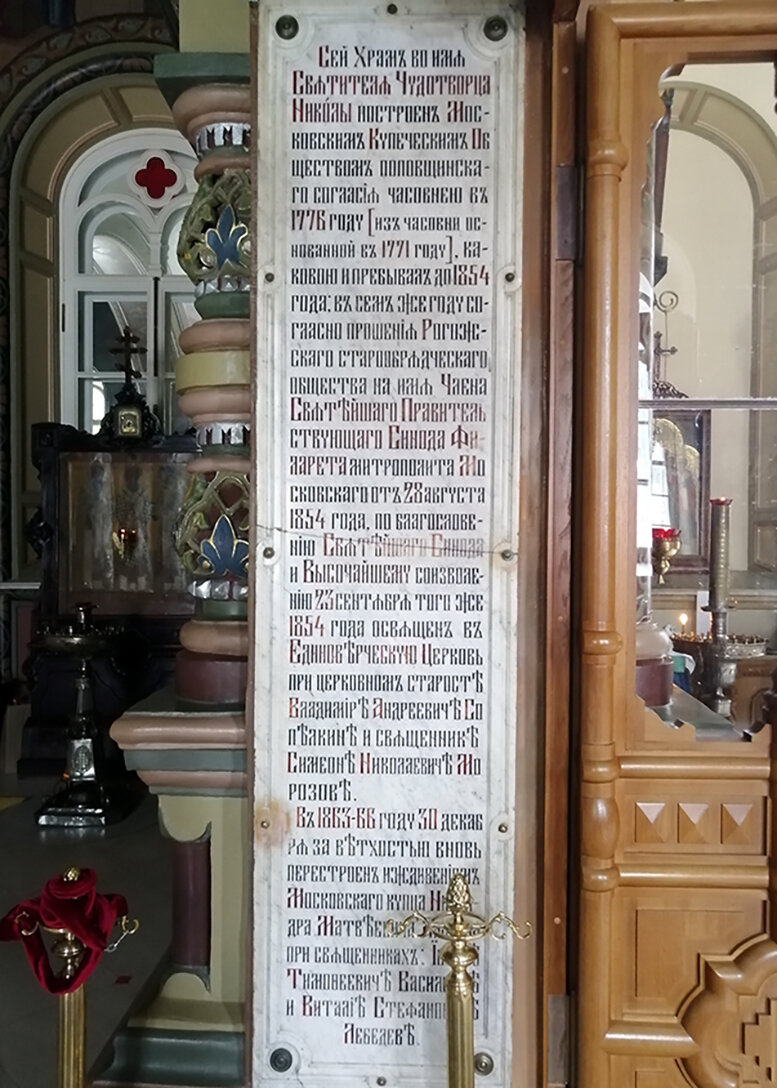 Сей Храмъ во имя
Святителя Чудотворца
Николы построенъ Мос-
ковскимъ Купеческимъ Об
ществомъ поповщинска-
го согласія часовнею въ
1776 году [изъ часовни ос-
нованной въ 1771 году], ка-
ковою и пребывалъ до 1854
года; въ семъ же году со-
гласно прошенія Рогожс-
скаго старообрядческаго
общества на имя Члена
Святѣйшаго Правитель
ствующаго Синода Фи-
ларета митрополита Мо
сковскаго отъ 28 августа
1854 года, по благослове-
нію Святѣйшаго Синода
и Высочайшему соизволе-
нію 23 сентября того же
1854 года освященъ въ
Единовѣрческую Церковь
при церковномъ старостѣ
Владимірѣ Андреевичѣ Со
пѣлкинѣ и священникѣ
Симеонѣ Николаевичѣ Мо
розовѣ.
Въ 1863-66 году 30 декаб
ря за ветхостью вновь
перестроенъ иждивеніемъ
Московскаго купца
дра Матвѣевича
при священникахъ:
Тимофеевичѣ
и Виталіѣ
Лебедевѣ.